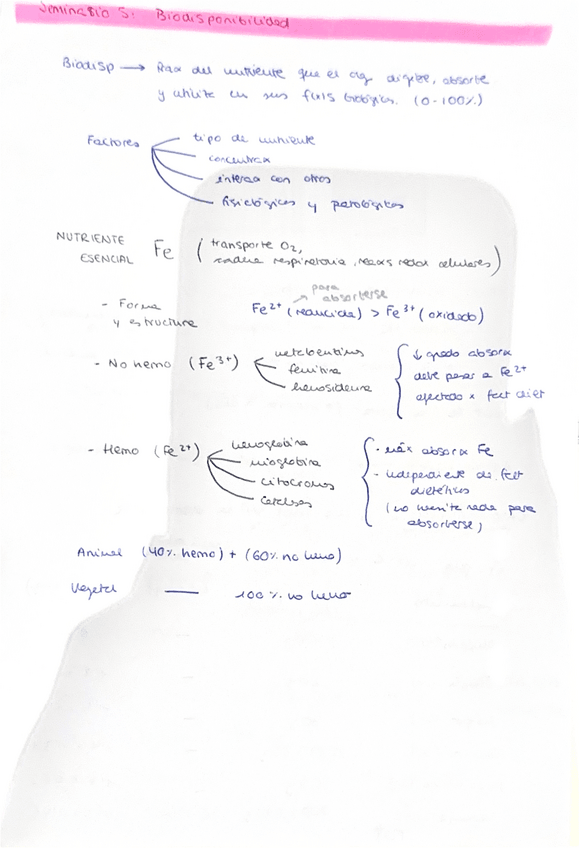 Seminario 5: Biodisponibilidad
Biodisp → Rax del nutriente que el org digiere, absorbe
y utilite en sus fxis biológicas. (0-100%)
Factores
tipo de nutriente
concentrax
interax con otros
fisiológicos y patológicos
NUTRIENTE ESENCIAL Fe (transporte O2,
cadena respiratoria, reaxs redox celulares)
- Forma y estructura
para absorberse
Fe2+ (reducida) > Fe3+ (oxidado)
- No hemo (Fe3+)
ferritina
hemosiderina
↓ grado absorx
debe pasar a Fe2+
afectado x fact diet
- Hemo (Fe2+)
hemoglobina
mioglobina
citocromos
catalasas
- máx absorx Fe
- independiente de fact
dietéticos
(no necesita nada para
absorberse)
Animal (40% hemo) + (60% no hemo)
Vegetal — 100% no hemo